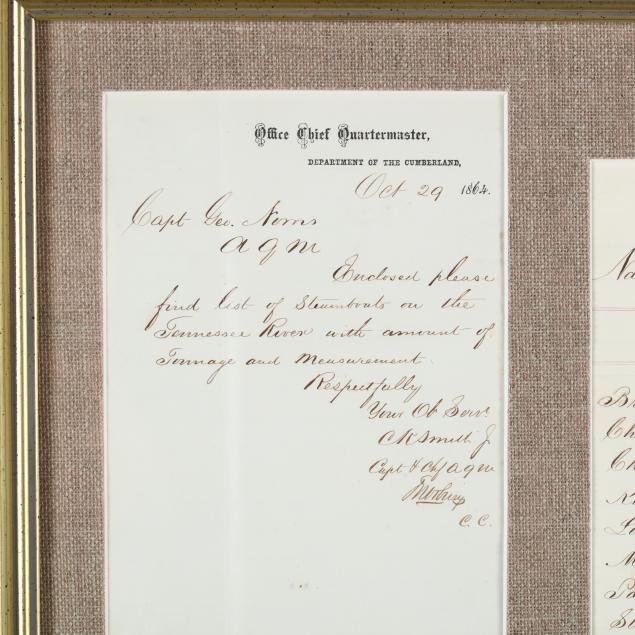 Office Chief Quartermaster,
DEPARTMENT OF THE CUMBERLAND,
Oct 29 1864.
Capt Geo. Norris
A Q M
Enclosed please
find list of Steamboats on the
Tennessee River with amount of
Tonnage and Measurement.
Respectfully
Your Ob Servt
C K Smith Jr
Capt & Chf A Q M
C. C.